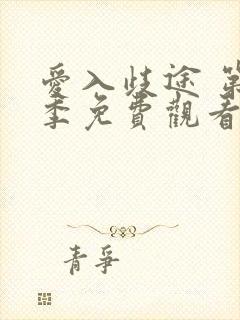 愛入歧途 第
季免費觀看
青爭